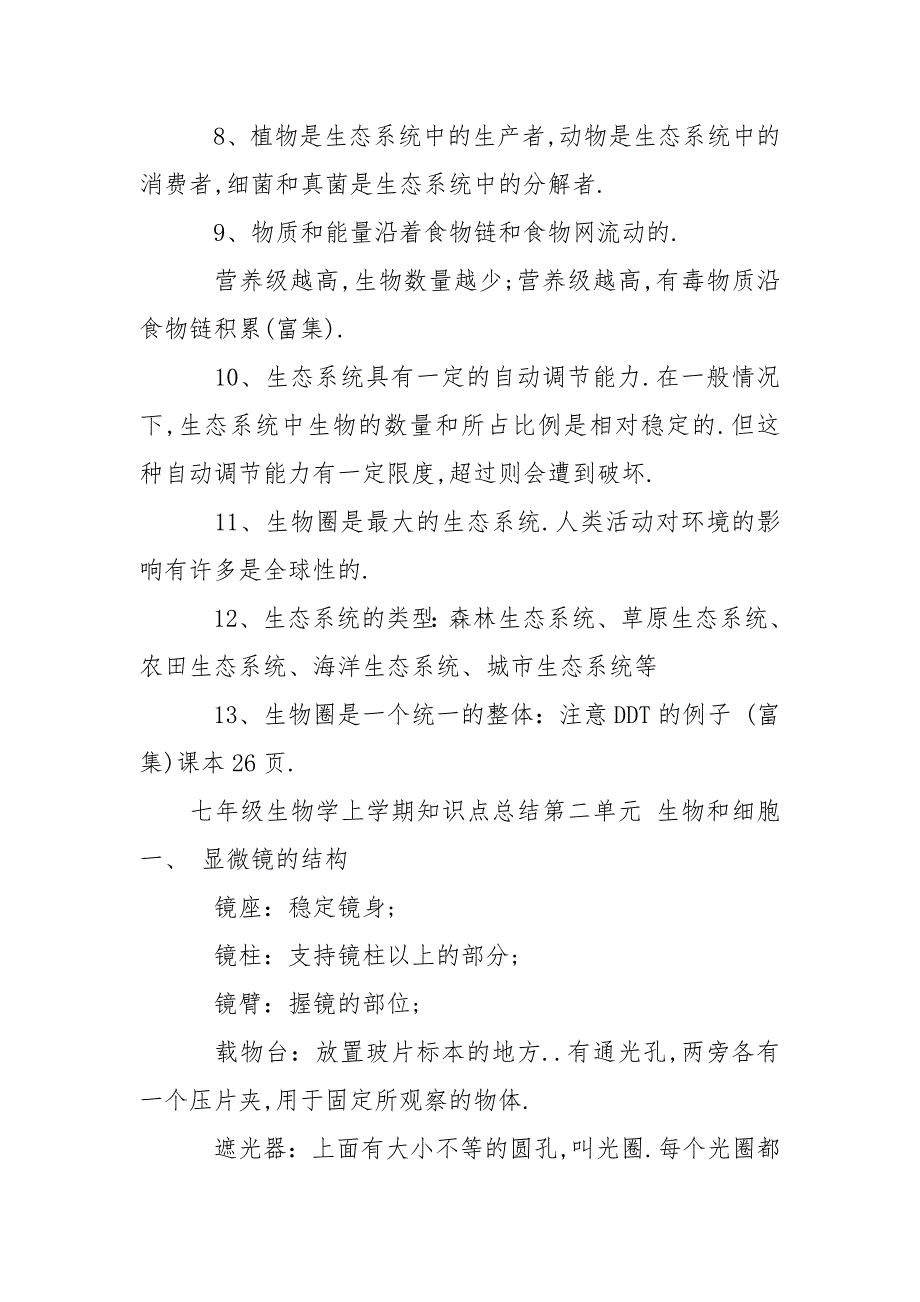 8、植物是生态系统中的生产者,动物是生态系统中的
消费者,细菌和真菌是生态系统中的分解者.
9、物质和能量沿着食物链和食物网流动的.
营养级越高,生物数量越少;营养级越高,有毒物质沿
食物链积累(富集).
10、生态系统具有一定的自动调节能力.在一般情况
下,生态系统中生物的数量和所占比例是相对稳定的.但这
种自动调节能力有一定限度,超过则会遭到破坏.
11、生物圈是最大的生态系统.人类活动对环境的影
响有许多是全球性的.
12、生态系统的类型:森林生态系统、草原生态系统、
农田生态系统、海洋生态系统、城市生态系统等
13、生物圈是一个统一的整体:注意DDT的例子 (富
集)课本26页.
七年级生物学上学期知识点总结第二单元 生物和细胞
一、 显微镜的结构
镜座:稳定镜身;
镜柱:支持镜柱以上的部分;
镜臂:握镜的部位;
载物台:放置玻片标本的地方..有通光孔,两旁各有
一个压片夹,用于固定所观察的物体.
遮光器:上面有大小不等的圆孔,叫光圈.每个光圈都